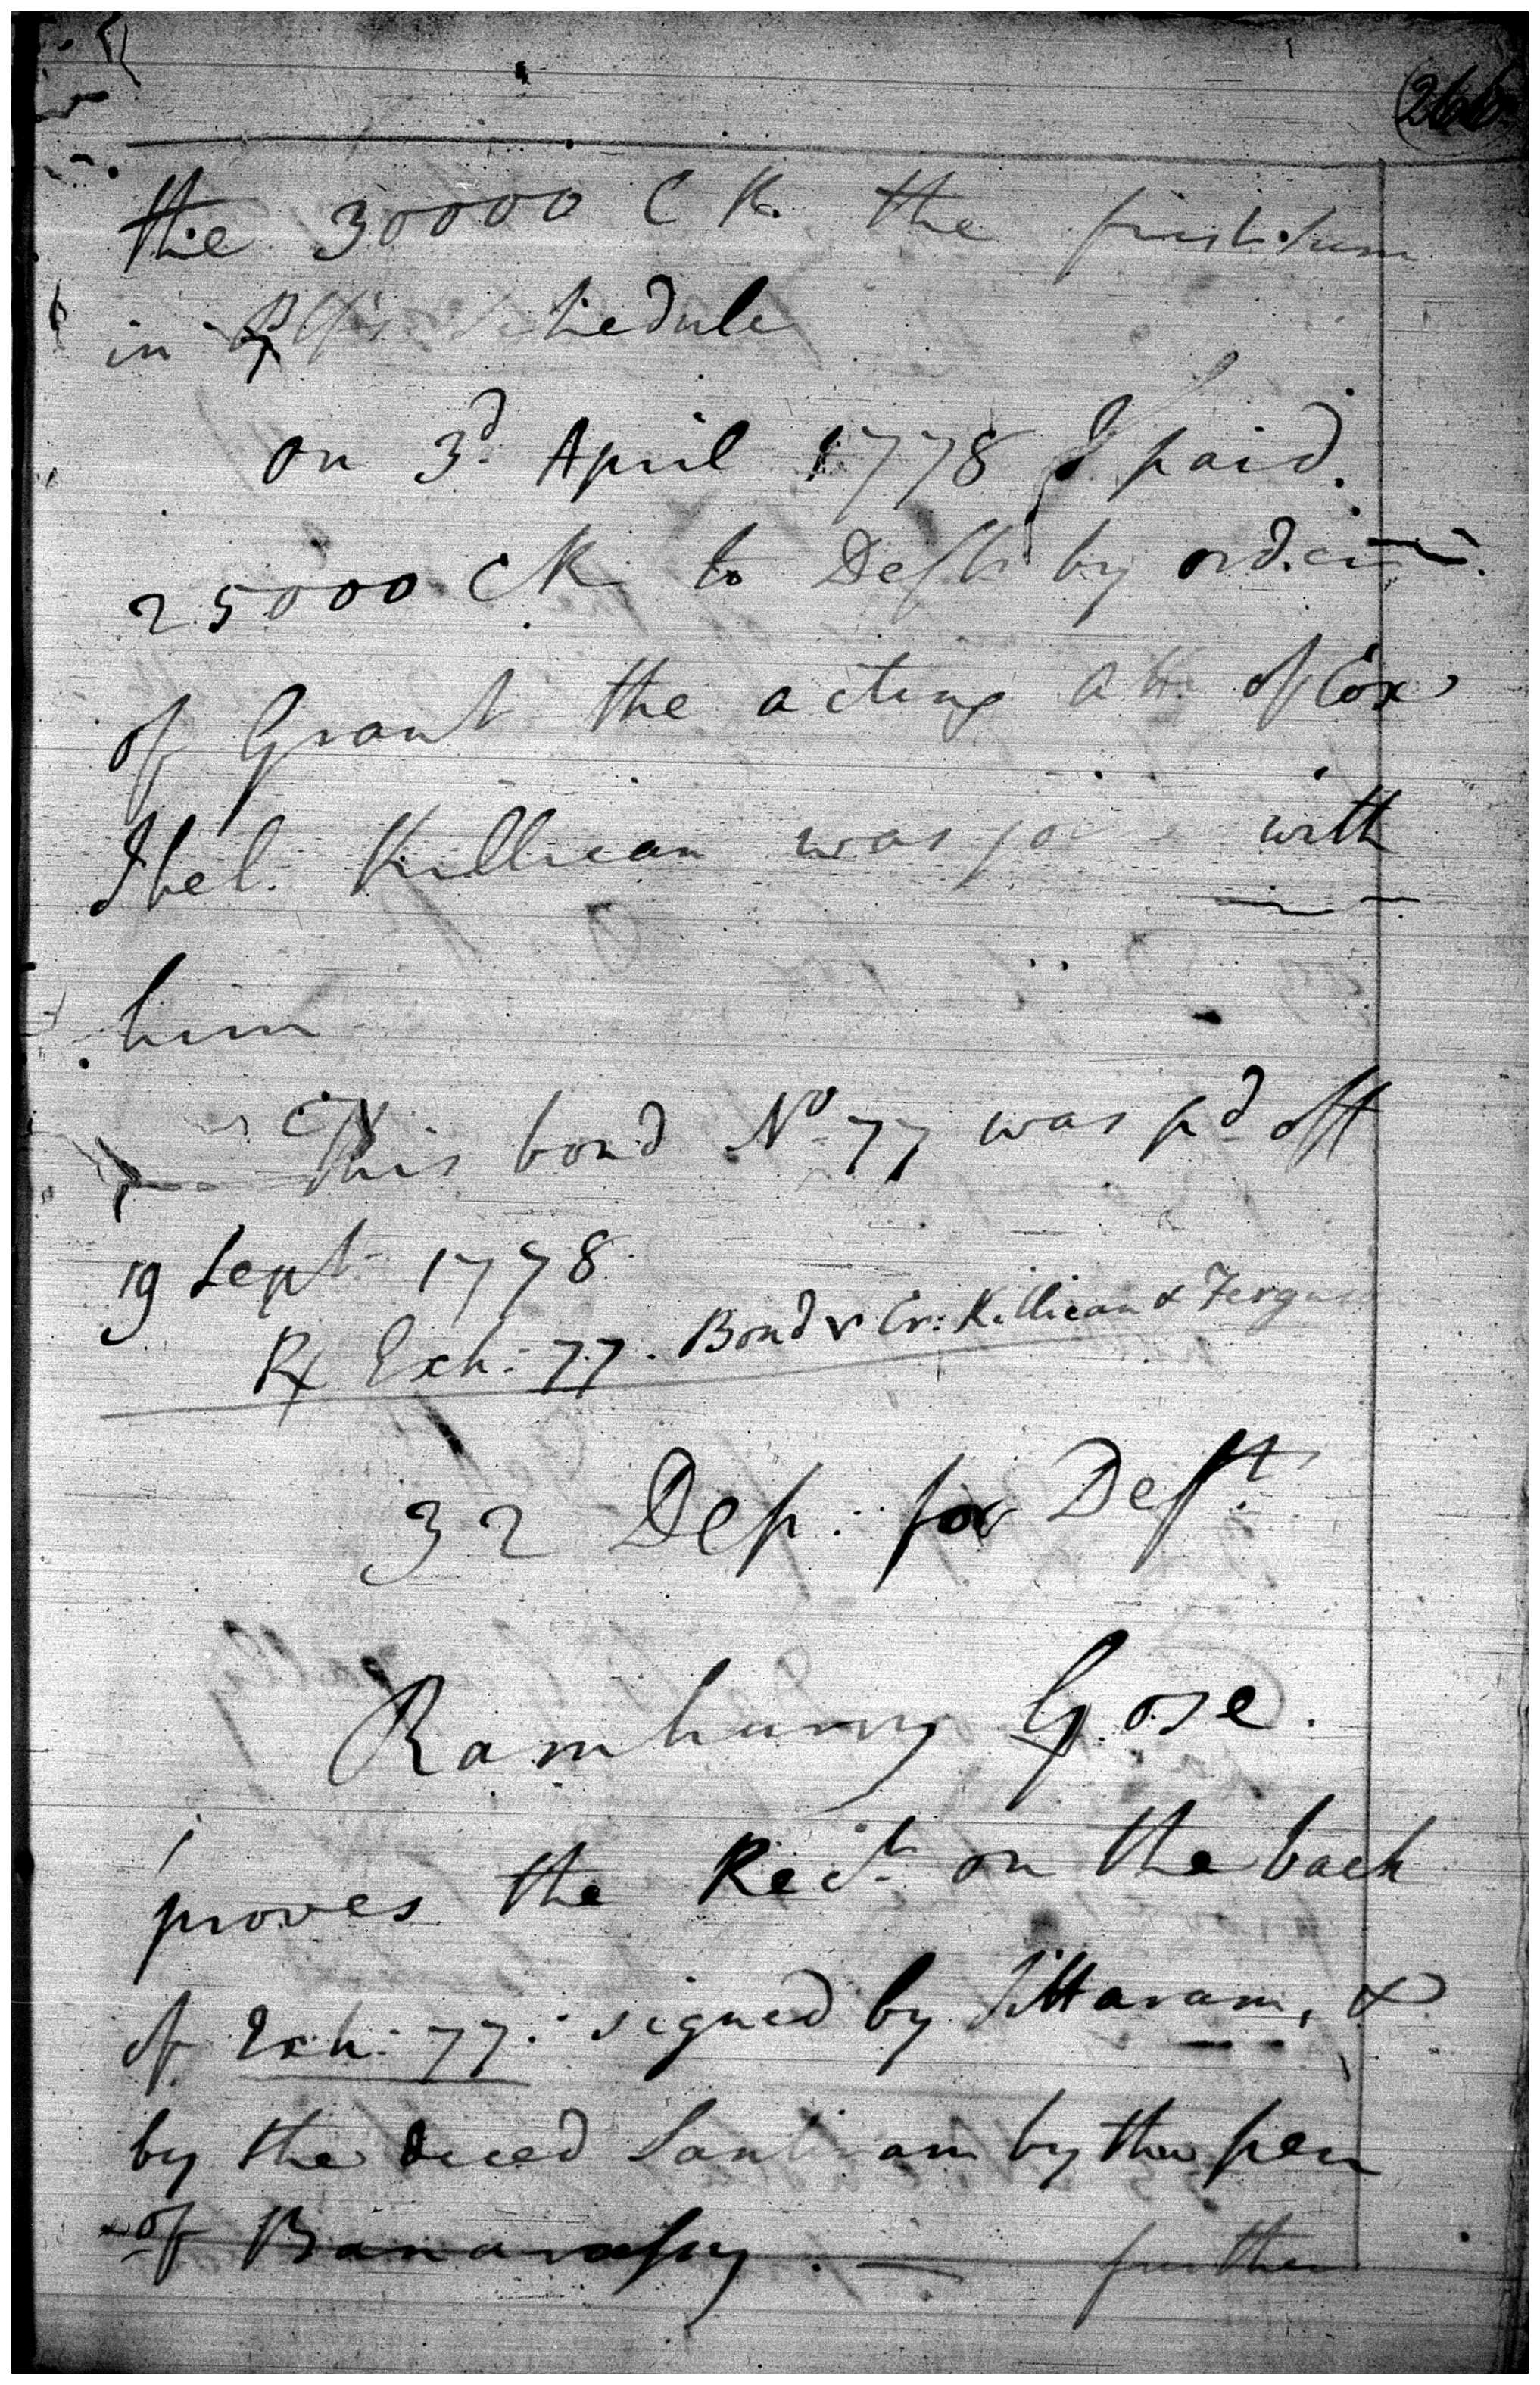 266
the 30000 C R. the first sum
in Pltfs schedule
on 3d April 1778 I paid.
25000 CR to Deft by order
of Grant the acting Att. of Cox
I bel. Killican was joined with
him
This bond No 77 was pd off
19 Sept. 1778.
Rx Exh: 77. Bond v Cr: Killican & Fergus
32 Dep: for Deft
Ramhurry Gose.
proves the Rect. on the back
of Exh: 77: signed by Sittaram, &
by the deced by the pen
of Banarassy. — further